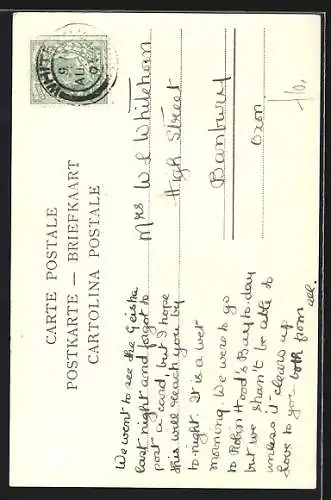 CARTE POSTALE
POSTKARTE — BRIEFKAART
CARTOLINA POSTALE
WHITB
9
AU
We went to see the Geisha
last night and forgot to
post a card, but I hope
this will reach you by
to-night. It is a wet
morning. We were to go
to Robin Hood's Bay to-day
but we shan't be able to
unless it clears up
Love to you both from all.
Mrs W L Whitehorn
High Street
Banbury
Oxon.